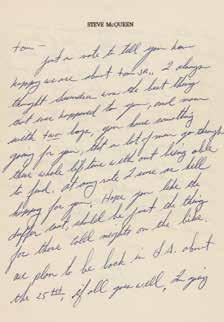 STEVE McQUEEN
Tom -
just a note to tell you how
happy we are about Tom Jr., I always
thought was the best thing
that ever happened to you, and now
with two boys, you have something
going for you, that a lot of men go through
there whole life time with out being able
to find. at any rate I sure as hell
happy for you. Hope you like the
duffer coat, should be just the thing
for those cold nights on the lake.
we plan to be back in L.A. about
the 25th, if all goes well, I